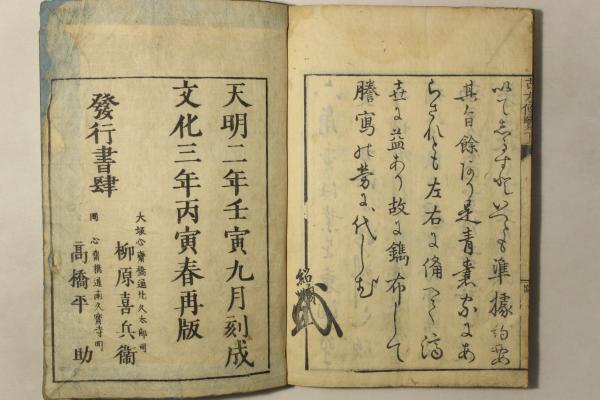 以てしるすといへども準據約要
其旨餘あり是青嚢家にあ
らされとも左右に備へて済
世に益あり故に鐫布して
謄寫の勞に代しむ
天明二年壬寅九月刻成
文化三年丙寅春再版
發行書肆
大坂心齋橋通北久太郎町
柳原喜兵衞
同心齋橋通南久寶寺町
高橋平助